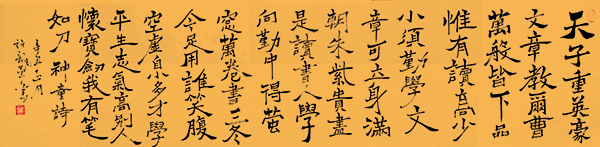 天子重英豪
文章教爾曹
萬般皆下品
惟有讀高少
小須勤學文
章可立身滿
朝朱紫貴盡
是讀書人學
向勤中得螢
窓萬卷書三冬
今足用誰笑腹
空虛自小多才學
平生志氣高別人
懷寶劍我有笔
如刀 神童詩
辛丑正月